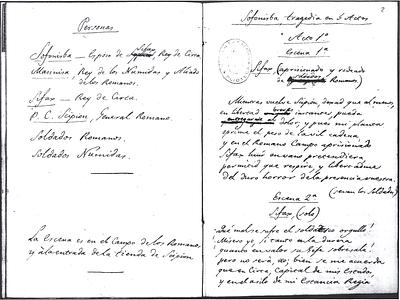 Personas
Sofonisba — Esposa de Sifax, Rey de Cirea.
Masinisa Rey de los Numidas y Aliado
de los Romanos.
Sifax — Rey de Cirea.
P. C. Scipion, General Romano.
Soldados Romanos.
Soldados Númidas.
La Escena es en el Campo de los Romanos,
y a la entrada de la tienda de Scipion
2
Sofonisba tragedia en 5 Actos
Acto 1º
Escena 1ª
Sifax (aprisionado y rodeado
de soldados Romanos)
Mientras vuelve Scipion, dexad que al menos,
en libertad
al dolor; y pues mi planta
oprime el peso de la vil cadena
y en el Romano Campo aprisionado
Sifax huir en vano pretendiera
permitid que respire y libertadme
del duro horror de la presencia vuestra.
(se van los Soldados)
Escena 2ª
Sifax, (solo)
Qué mal se sufre el soldadesco orgullo!
Mísero yo, si tanto en la dura
quanto en valor su Gefe sobresale!
pero no será, no; bien se me acuerda
que en Cirea, Capital de mis Estados,
y en el asilo de mi Estancia Regia